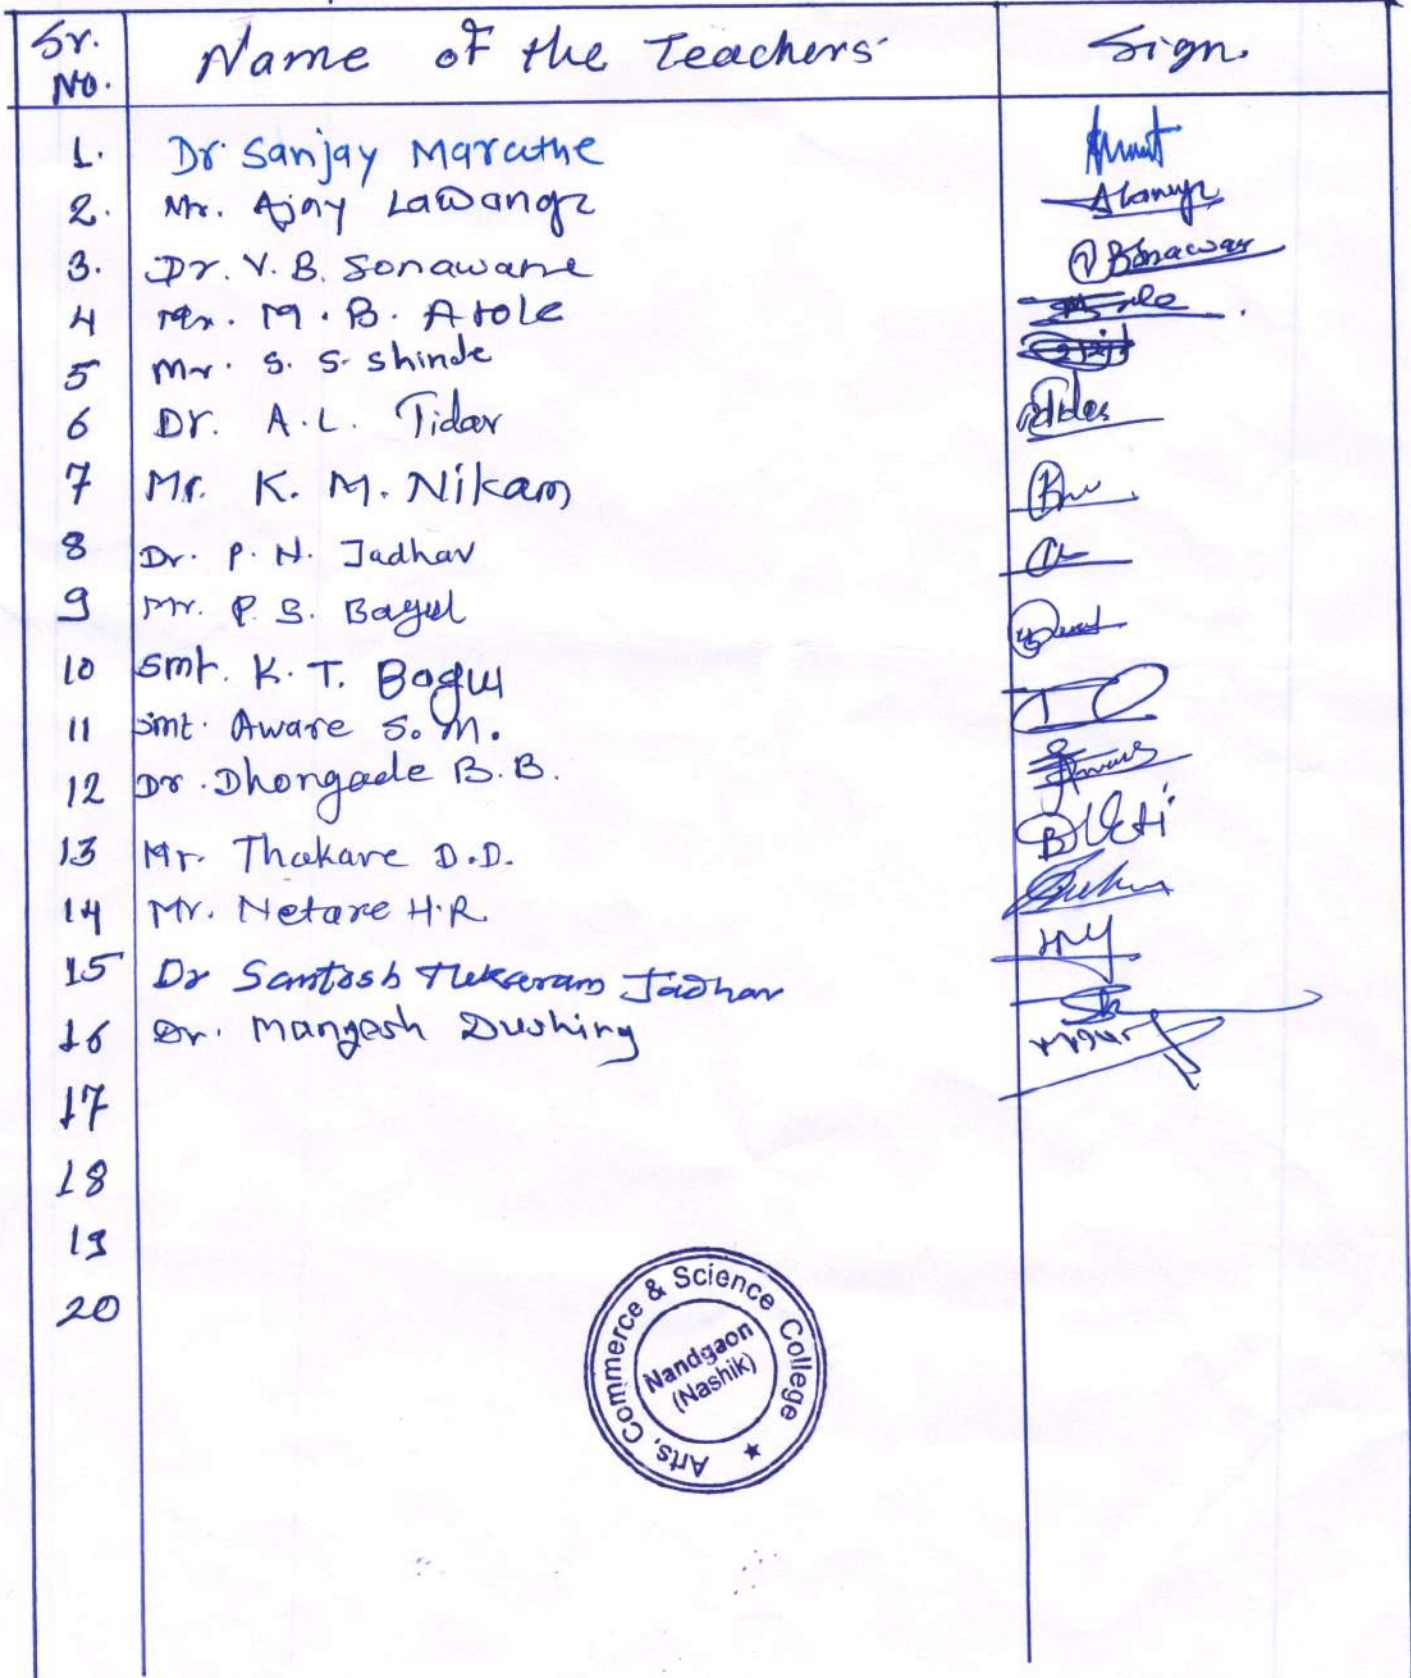 Sr. No. Name of the Teachers Sign.
1. Dr. Sanjay Marathe
2. Mr. Ajay Lawange
3. Dr. V. B. Sonawane
4 Mr. M. B. Atole
5 Mr. S. S. Shinde
6 Dr. A. L. Tidar
7 Mr. K. M. Nikam
8 Dr. P. N. Jadhav
9 Mr. P. S. Bagul
10 Smt. K. T. Bagul
11 Smt. Aware S. M.
12 Dr. Dhongade B. B.
13 Mr. Thakare D. D.
14 Mr. Netare H. R.
15 Dr Santosh Tukaram Jadhav
16 Dr. Mangesh Dushing
17
18
19
20
Arts, Commerce & Science College
Nandgaon
(Nashik)